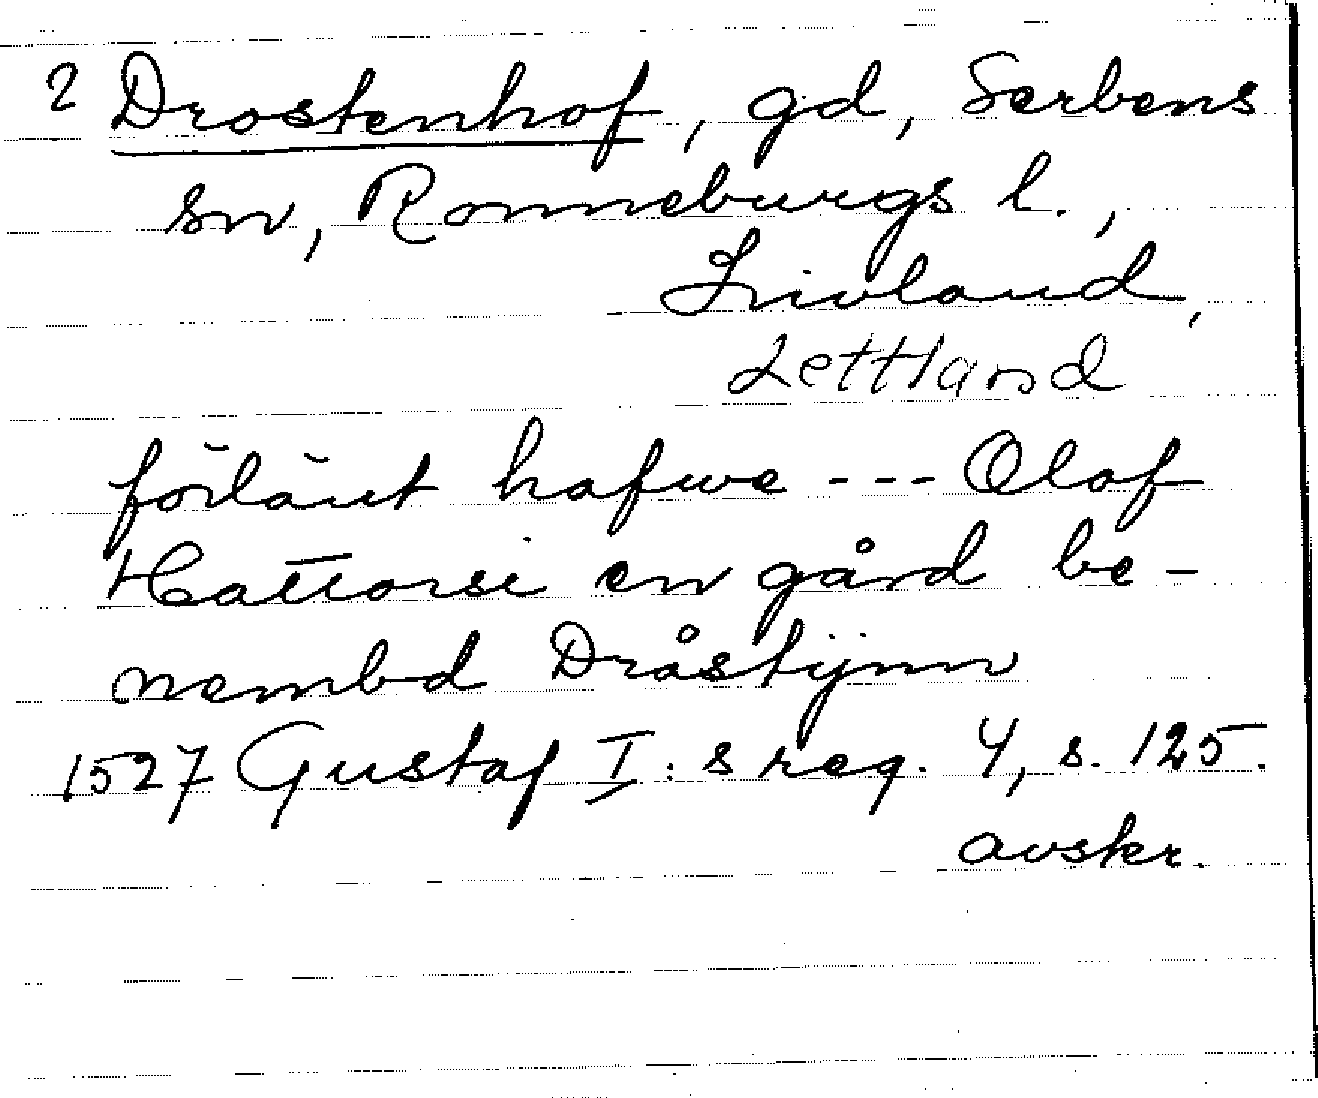 ? Drostenhof, gd, Serbens
sn, Ronneburgs l.,
Livland,
Lettland
förlänt hafwe --- Olaf
Hattorsi en gård be-
nembd Dråstÿnn
1527 Gustaf I:s reg. 4, s. 125.
avskr.